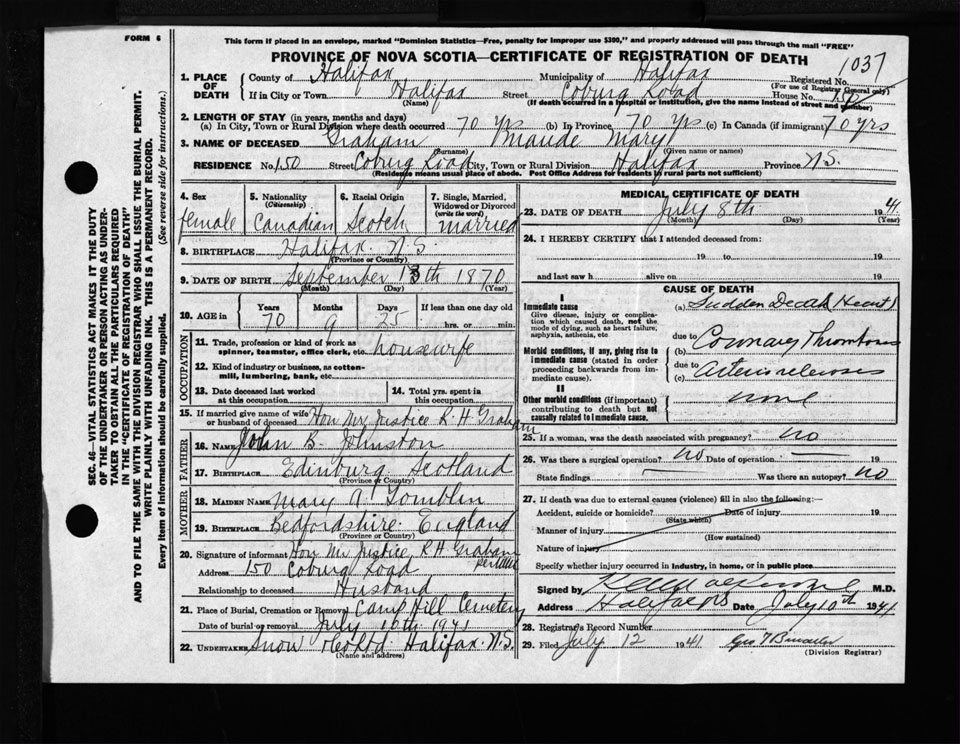 FORM 6
This form if placed in an envelope, marked "Dominion Statistics—Free, penalty for improper use $300," and properly addressed will pass through the mail "FREE"
PROVINCE OF NOVA SCOTIA—CERTIFICATE OF REGISTRATION OF DEATH
1037
1. PLACE OF DEATH { County of Halifax Municipality of Halifax Registered No.
(For use of Registrar General only)
If in City or Town Halifax Street Coburg Road House No. 150
(Name) (If death occurred in a hospital or institution, give the name instead of street and number)
2. LENGTH OF STAY (in years, months and days)
(a) In City, Town or Rural Division where death occurred 70 yrs (b) In Province 70 yrs (c) In Canada (if immigrant) 70 yrs
3. NAME OF DECEASED Graham Maude Mary
(Surname) (Given name or names)
RESIDENCE No. 150 Street Coburg Road City, Town or Rural Division Halifax Province N.S.
(Residence means usual place of abode. Post Office Address for residents in rural parts not sufficient)
4. Sex female
5. Nationality (Citizenship) Canadian
6. Racial Origin Scotch
7. Single, Married, Widowed or Divorced (write the word) married
8. BIRTHPLACE Halifax N.S.
(Province or Country)
9. DATE OF BIRTH September 13th 1870
(Month) (Day) (Year)
10. AGE in { Years 70 Months 9 Days 25 If less than one day old
hrs. or min.
OCCUPATION
11. Trade, profession or kind of work as spinner, teamster, office clerk, etc. housewife
12. Kind of industry or business, as cotton-mill, lumbering, bank, etc.
13. Date deceased last worked at this occupation
14. Total yrs. spent in this occupation
15. If married give name of wife or husband of deceased Hon Mr Justice R H Graham
FATHER
16. NAME John B. Johnston
17. BIRTHPLACE Edinburg Scotland
(Province or Country)
MOTHER
18. MAIDEN NAME Mary A. Tomblin
19. BIRTHPLACE Bedfordshire England
(Province or Country)
20. Signature of informant Hon Mr Justice R H Graham
Address 150 Coburg Road
Relationship to deceased Husband
21. Place of Burial, Cremation or Removal Camp Hill Cemetery
Date of burial or removal July 10th 1941
22. UNDERTAKER Snow & Co Ltd Halifax N.S.
(Name and address)
MEDICAL CERTIFICATE OF DEATH
23. DATE OF DEATH July 8th 1941
(Month) (Day) (Year)
24. I HEREBY CERTIFY that I attended deceased from:
19 to 19
and last saw h alive on 19
CAUSE OF DEATH
I
Immediate cause (a) Sudden Death (Heart)
Give disease, injury or complication which caused death, not the mode of dying, such as heart failure, asphyxia, asthenia, etc
due to
Morbid conditions, if any, giving rise to immediate cause (stated in order proceeding backwards from immediate cause).
(b) Coronary Thrombosis
due to
(c) Arteriosclerosis
II
Other morbid conditions (if important) contributing to death but not causally related to immediate cause. none
25. If a woman, was the death associated with pregnancy? no
26. Was there a surgical operation? no Date of operation 19
State findings Was there an autopsy? no
27. If death was due to external causes (violence) fill in also the following:—
Accident, suicide or homicide? Date of injury 19
(State which)
Manner of injury
(How sustained)
Nature of injury
Specify whether injury occurred in industry, in home, or in public place
Signed by M.D.
Address Halifax NS Date July 10th 1941
28. Registrar's Record Number
29. Filed July 12 1941
(Division Registrar)
SEC. 46—VITAL STATISTICS ACT MAKES IT THE DUTY
OF THE UNDERTAKER OR PERSON ACTING AS UNDER-
TAKER TO OBTAIN ALL THE PARTICULARS REQUIRED
IN THE "CERTIFICATE OF REGISTRATION OF DEATH"
AND TO FILE THE SAME WITH THE DIVISION REGISTRAR WHO SHALL ISSUE THE BURIAL PERMIT.
WRITE PLAINLY WITH UNFADING INK. THIS IS A PERMANENT RECORD.
Every item of information should be carefully supplied. (See reverse side for instructions.)